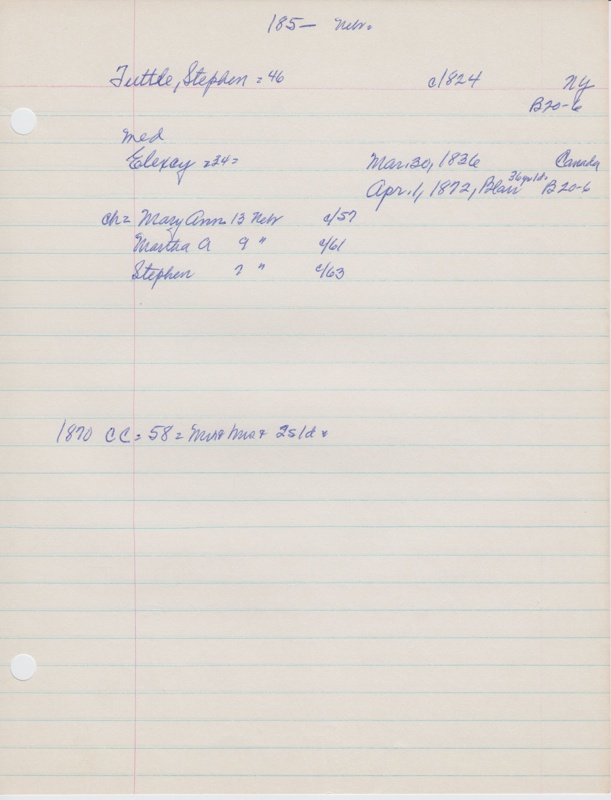 185— Nebr.
Tuttle, Stephen = 46 c/1824 NY
B20-6
med
Elexey =34= Mar. 30, 1836 Canada
Apr. 1, 1872, Blair 36yr1d. B20-6
ch= Mary Ann 13 Nebr c/57
Martha A 9 " c/61
Stephen 7 " c/63
1870 CC = 58 = Mr & Mrs + 2s/d +